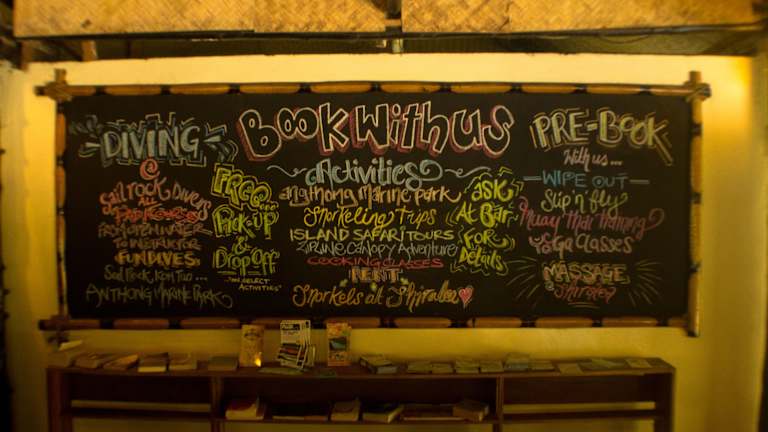 DIVING
@
Sail Rock Divers
ALL
PADI COURSES
FROM OPEN WATER
TO INSTRUCTOR
FUN DIVES.
Sail Rock, Koh Tao...
ANTHONG MARINE PARK
FREE...
Pick-up
&
Drop Off
"ON SELECT
ACTIVITIES"
Book With us
Activities
angthong Marine park
Snorkeling Trips
ISLAND SAFARI TOURS
ZIPLINE CANOPY Adventure
COOKING CLASSES
RENT.
Snorkels at Shiralea
ASK
At BAR
FOR
Details
PRE-BOOK
With us...
WIPE OUT
Slip n' fly
Muay Thai Training
YOGA Classes
MASSAGE
@ Shiralea